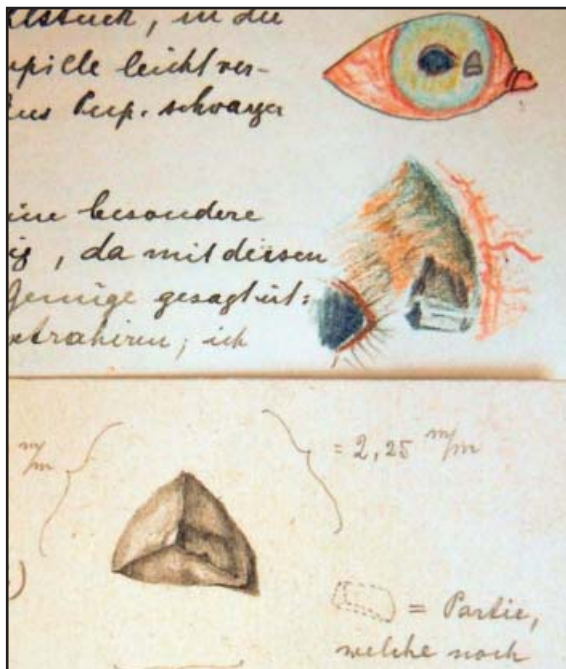 in die
upille leicht ver-
Pup. schwarzer
ine besondere
ig, da mit diesem
Jenige gesagt ist:
xtrahiren; ich
m/m
= 2,25 m/m
)
= Partie,
welche noch